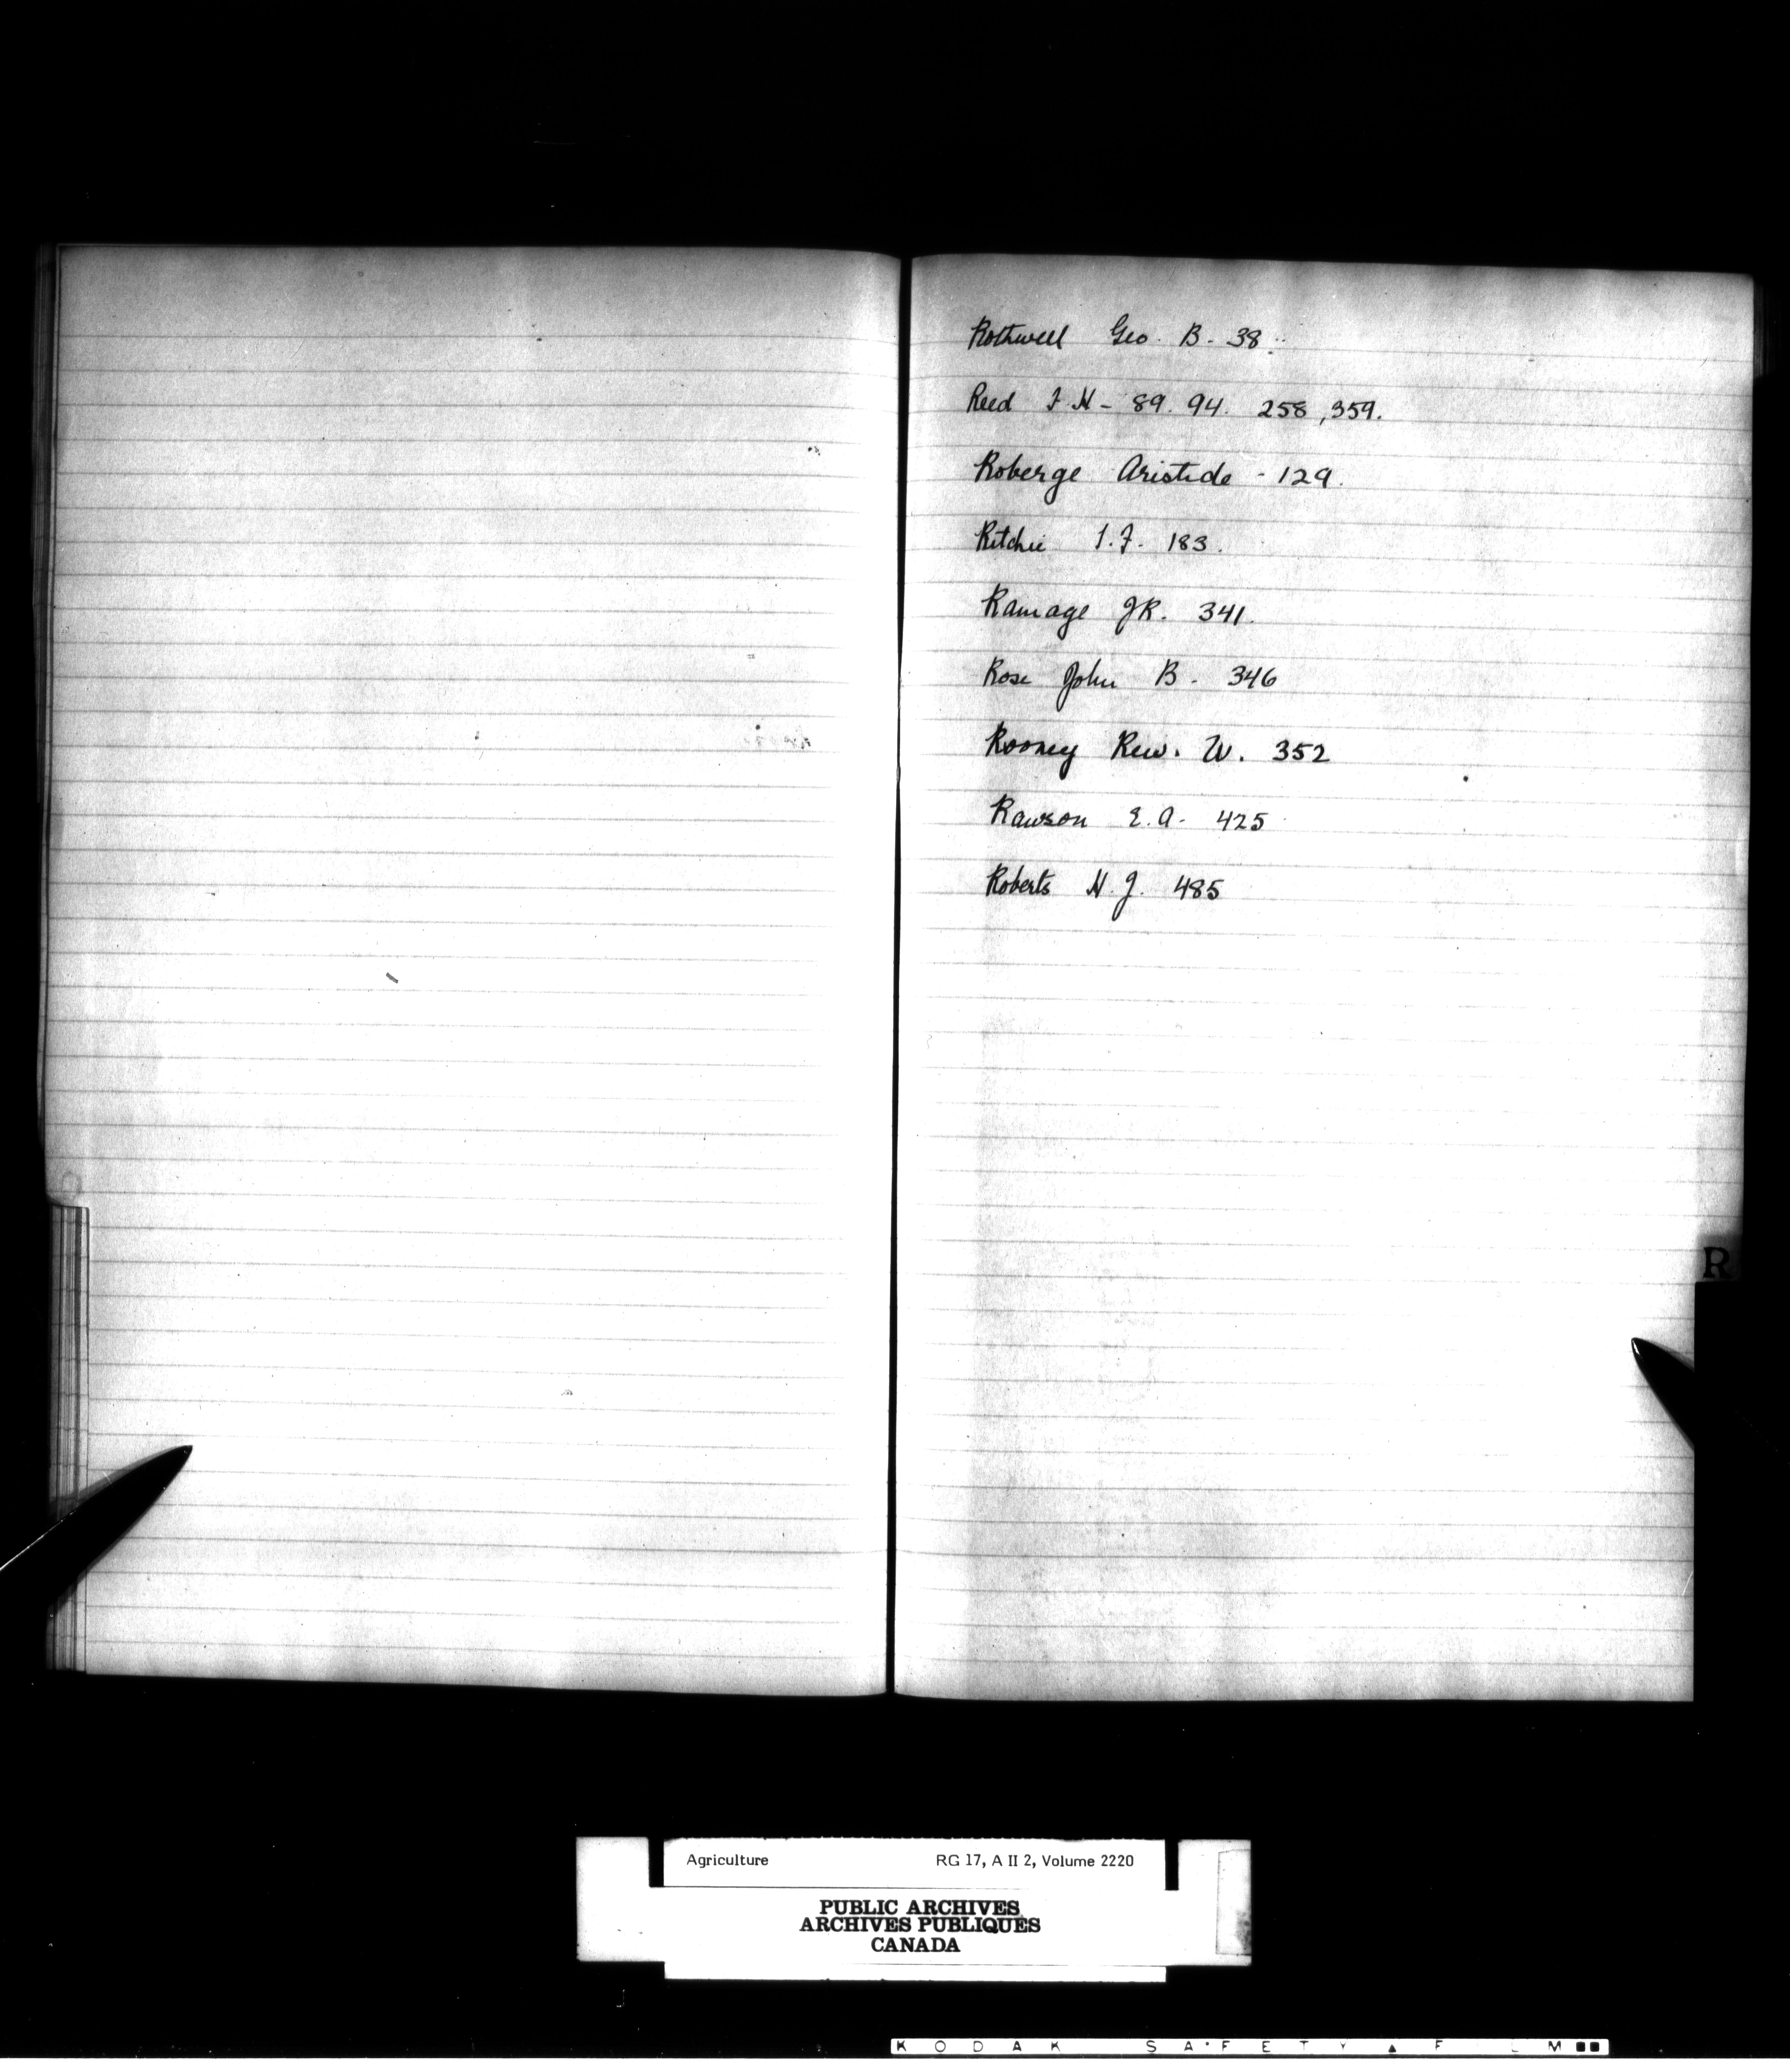 Rothwell Geo. B. 38
Reed F H - 89. 94. 258, 359.
Roberge Aristide - 129.
Ritchie T. F. 183.
Ramage J R. 341.
Rose John B. 346
Rooney Rew. W. 352
Rawson E. A. 425
Roberts H. J. 485
R
Agriculture RG 17, A II 2, Volume 2220
PUBLIC ARCHIVES
ARCHIVES PUBLIQUES
CANADA
KODAK SAFETY